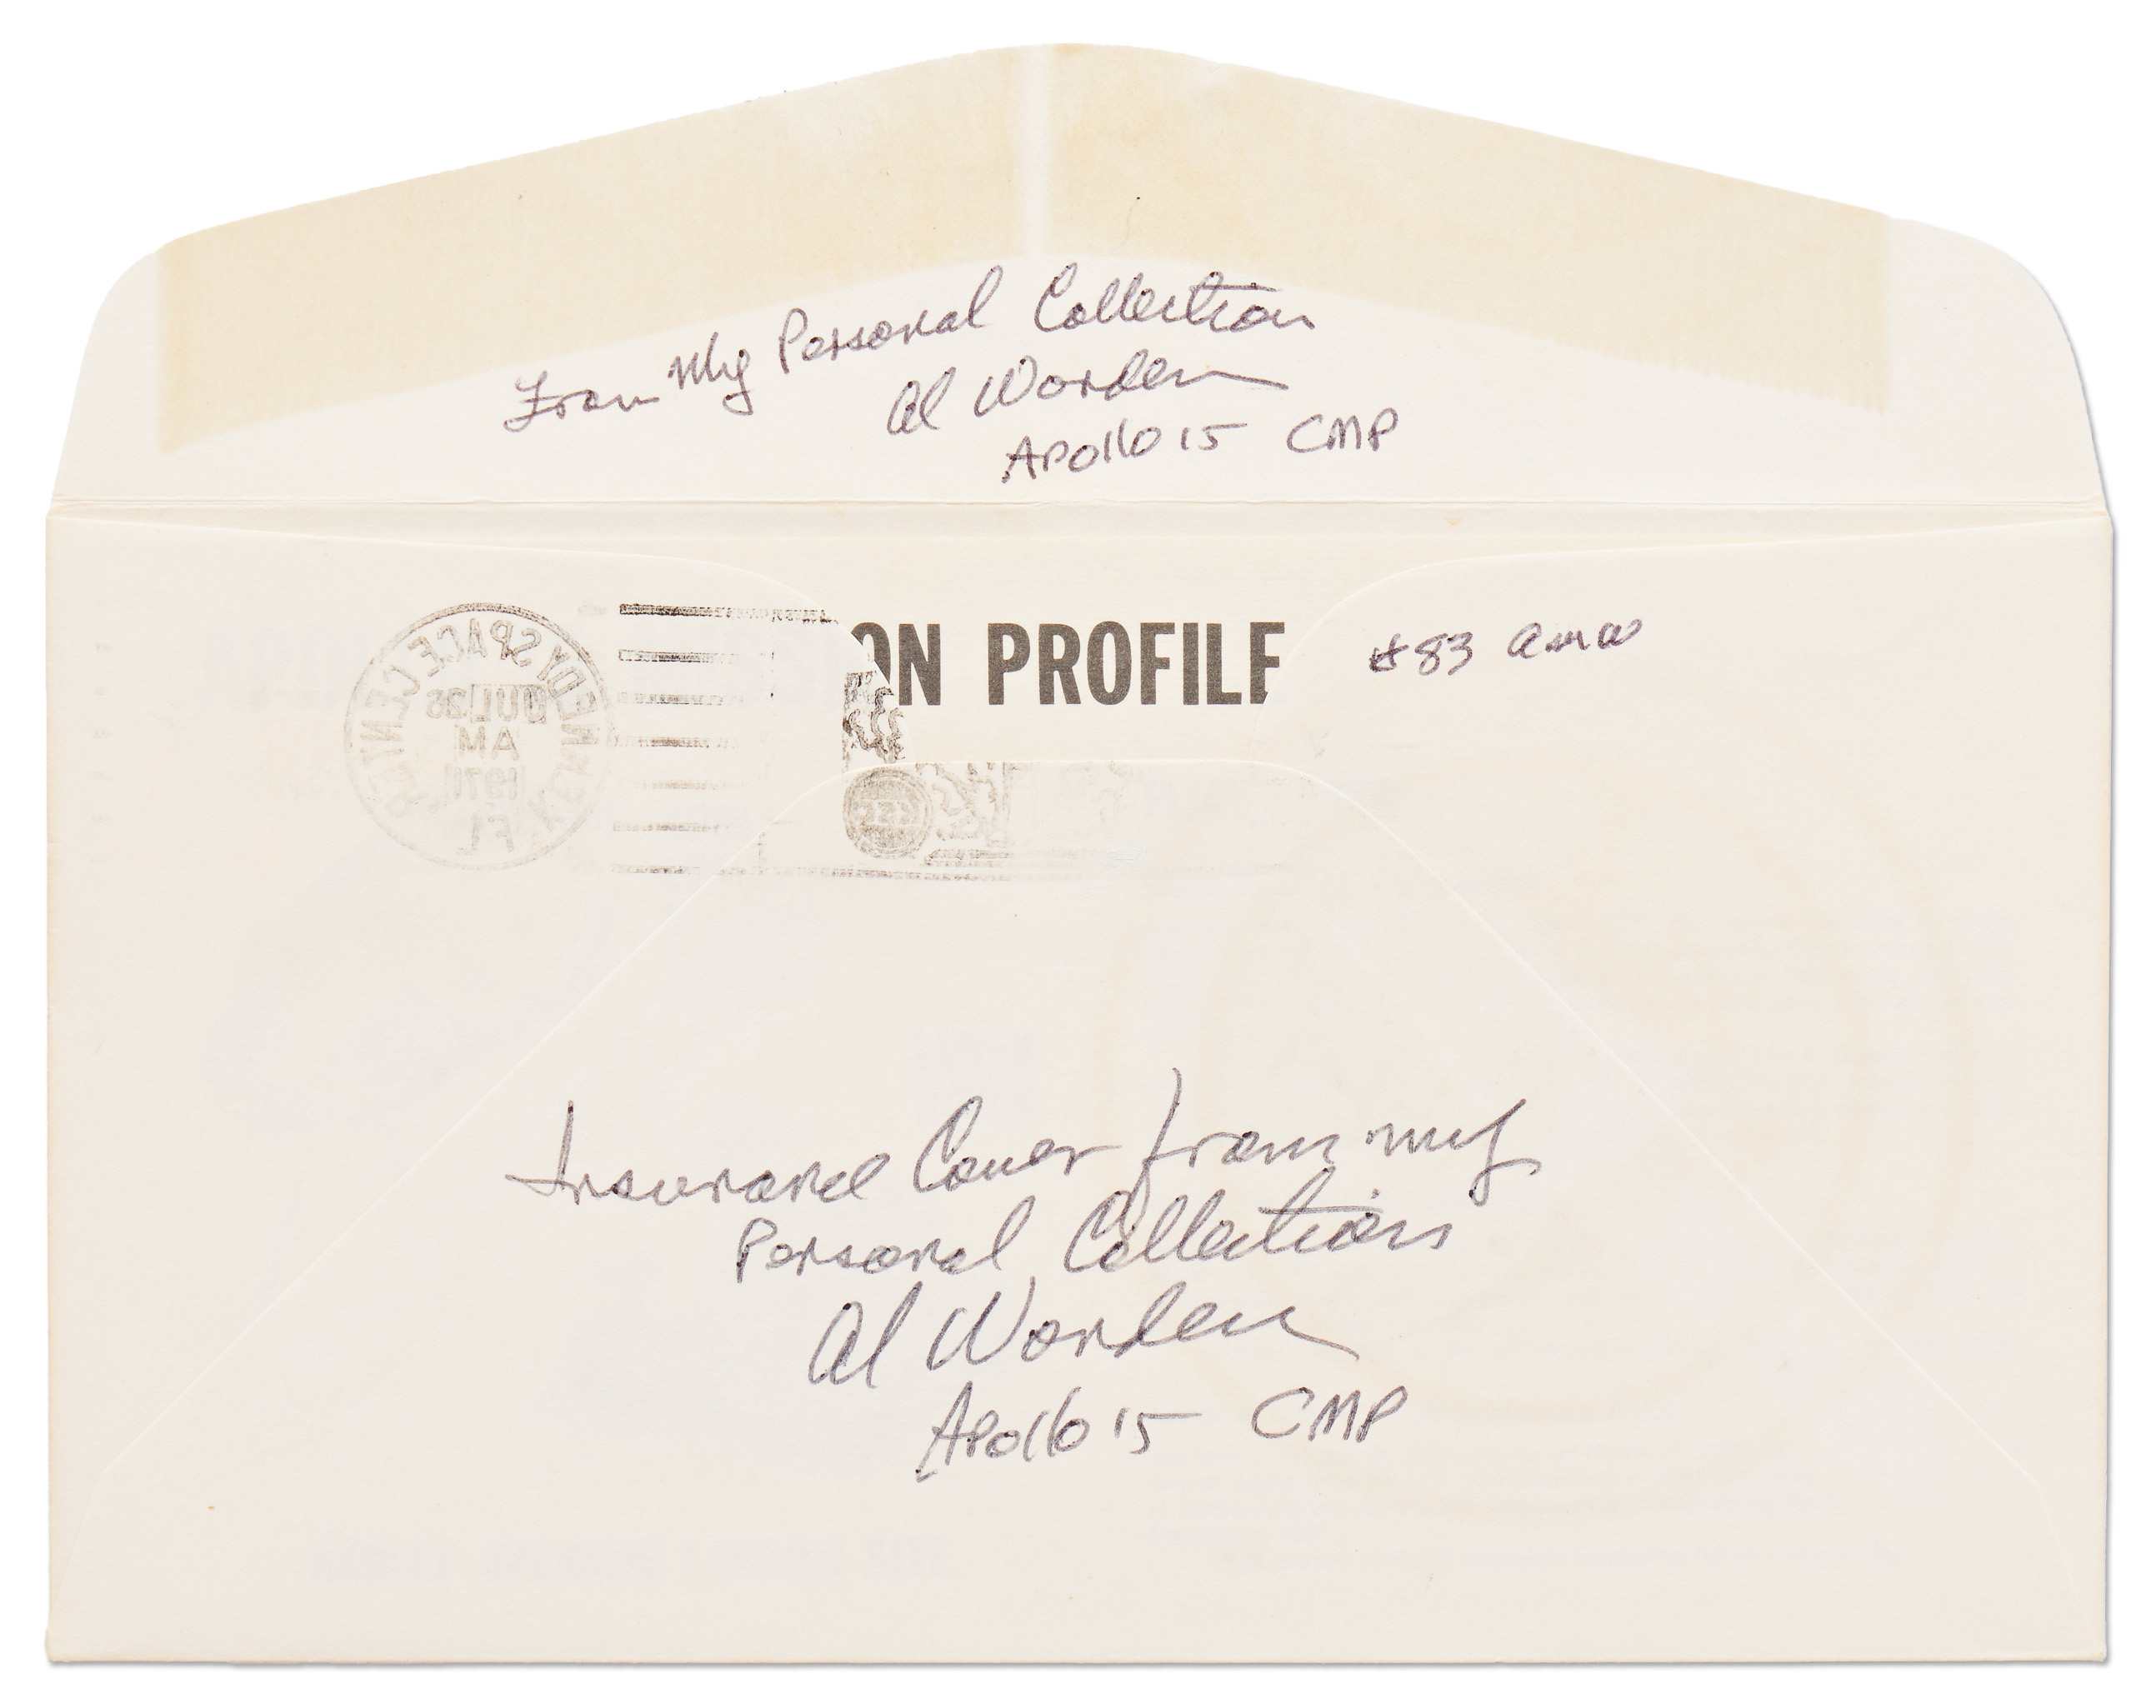 From My Personal Collection
Al Worden
Apollo 15 CMP
ON PROFILE
#83 amw
KENNEDY SPACE CENTER
JUL 26
AM
1971
FL
Insurance Cover from my
Personal Collection
Al Worden
Apollo 15 CMP